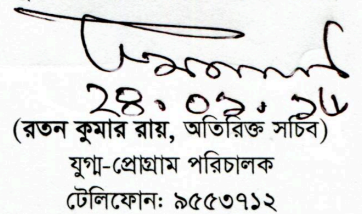 (রতন কুমার রায়, অতিরিক্ত সচিব)
যুগ্ম-প্রোগ্রাম পরিচালক
টেলিফোনঃ ৯৫৫৩৭১২